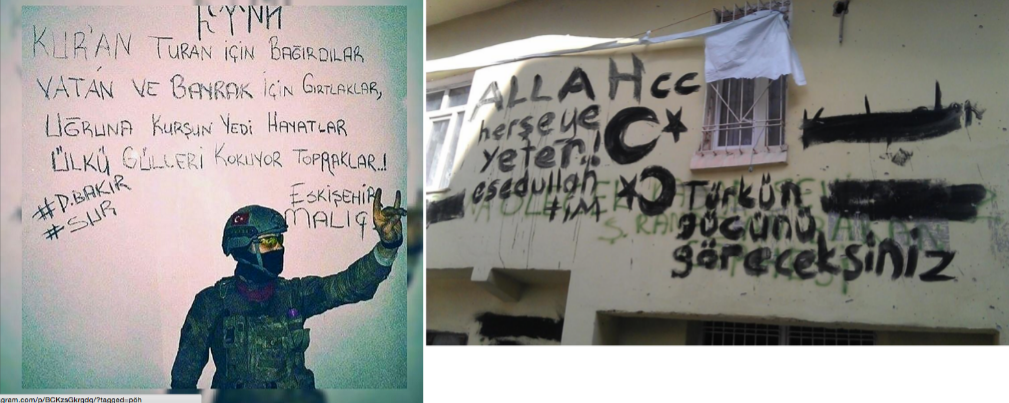 KUR'AN TURAN İÇİN BAĞIRDILAR
VATAN VE BAYRAK İÇİN GIRTLAKLAR,
UĞRUNA KURŞUN YEDİ HAYATLAR
ÜLKÜ GÜLLERİ KOKUYOR TOPRAKLAR..!
#D.BAKIR
#SUR
ESKİŞEHİR
MALIÇ
gram.com/p/BCKzsGkrgdg/?tagged=pöh
ALLAH cc
herşeye
yeter.!
esedullah
#TİM
Türkün
gücünü
göreceksiniz